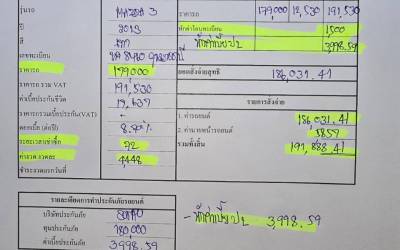 รุ่นรถ MAZDA 3
ราคารถ 179,000 12,530 191,530
ปี 2013
หักค่าโอนทะเบียน 1,500
สี เทา
หักค่าเบี้ยปa 3,998.59
เลขทะเบียน
ราคารถ 179,000
ยอดสั่งจ่ายสุทธิ 186,031.41
ราคารถ รวม VAT 191,530
ค่าเบี้ยประกันชีวิต
รายการสั่งจ่าย
ราคารถรวมเบี้ยประกัน(VAT) -
1. ค่ารถยนต์ 186,031.41
ดอกเบี้ย (ต่อปี)
2. ค่านายหน้ารถยนต์ 5857
ระยะเวลาเช่าซื้อ 72
รวมทั้งสิ้น 191,888.41
ค่างวด งวดละ 4,448
ชำระงวดแรกวันที่
รายละเอียดการทำประกันภัยรถยนต์
บริษัทประกันภัย
- หักค่าเบี้ยปa 3,998.59
ทุนประกันภัย 180,000
ค่าเบี้ยประกันภัย 3,998.59